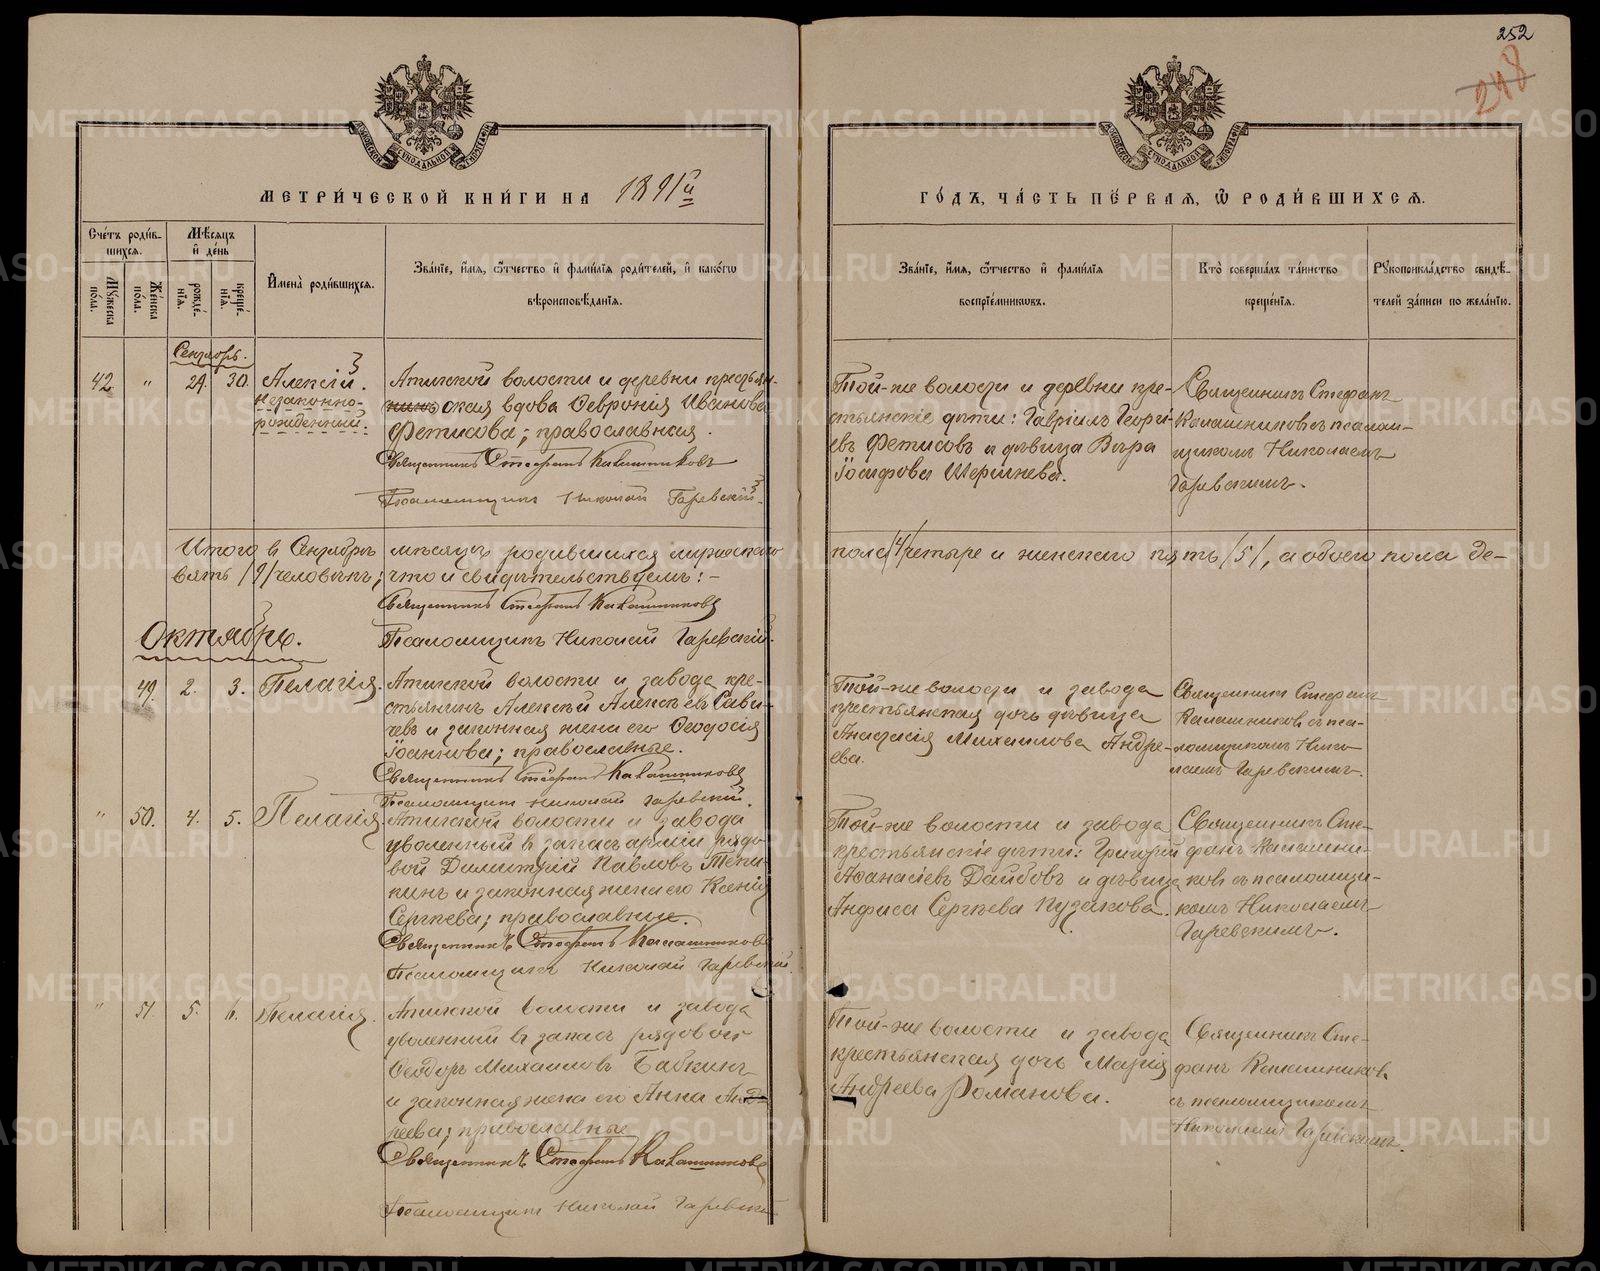 252
248
МЕТРИ́ЧЕСКОЙ КНИ́ГИ НА 1891й
ГО́ДЪ, ЧА́СТЬ ПЕ́РВАЯ, Ѡ РОДИ́ВШИХСЯ.
Сче́тъ роди́в-
шихся.
Му́жеска по́ла.
Же́нска по́ла.
Мѣ́сяцъ и де́нь
рожде́нія.
креще́нія.
Имена̀ роди́вшихся.
Зва́ніе, и́мя, ѻ́тчество и фами́лія роди́телей, и како́гѡ
вѣроисповѣ́данія.
Зва́ніе, и́мя, ѻ́тчество и фами́лія
воспріе́мниковъ.
Кто̀ соверша́лъ та́инство
креще́нія.
Рукоприкла́дство свидѣ́-
телей за́писи по жела́нію.
Сентябрь.
42 " 29. 30. Алексій.
незаконно-
рожденный.
Атигской волости и деревни крестьян-
ская вдова Февронія Иванова
Фетисова; православная.
Священникъ Стефанъ Калашниковъ
Псаломщикъ Николай Гаревскій.
Той-же волости и деревни кре-
стьянскіе дѣти: Гавріилъ Георгі-
евъ Фетисовъ и дѣвица Вѣра
Іосифова Шершнева.
Священникъ Стефанъ
Калашниковъ съ псалом-
щикомъ Николаемъ
Гаревскимъ.
Итого въ Сентябрѣ мѣсяцѣ родившихся мужескаго пола /4/ четыре и женскаго пять /5/, а обоего пола де-
вять /9/ человѣкъ; что и свидѣтельствуемъ: –
Священникъ Стефанъ Калашниковъ
Псаломщикъ Николай Гаревскій.
Октябрь.
49. 2. 3. Пелагія.
Атигской волости и завода кре-
стьянинъ Алексѣй Алексѣевъ Сави-
чевъ и законная жена его Ѳеодосія
Іоаннова; православные.
Священникъ Стефанъ Калашниковъ
Псаломщикъ Николай Гаревскій.
Той-же волости и завода
крестьянская дочь дѣвица
Анастасія Михаилова Андре-
ева.
Священникъ Стефанъ
Калашниковъ съ пса-
ломщикомъ Нико-
лаемъ Гаревскимъ.
" 50. 4. 5. Пелагія.
Атигской волости и завода
уволенный въ запасъ арміи рядо-
вой Димитрій Павловъ
и законная жена его Ксенія
Сергѣева; православные.
Священникъ Стефанъ Калашниковъ
Псаломщикъ Николай Гаревскій.
Той-же волости и завода
крестьянскіе дѣти: Григорій
Аѳанасіевъ Даибовъ и дѣвица
Анфиса Сергѣева Пузакова.
Священникъ Сте-
фанъ Калашни-
ковъ съ псаломщи-
комъ Николаемъ
Гаревскимъ.
" 51. 5. 6. Пелагія.
Атигской волости и завода
уволенный въ запасъ рядовой
Ѳеодоръ Михаиловъ Бабкинъ
и законная жена его Анна Анд-
реева; православные
Священникъ Стефанъ Калашниковъ
Псаломщикъ Николай Гаревскій
Той-же волости и завода
крестьянская дочь Марія
Андреева Романова.
Священникъ Сте-
фанъ Калашниковъ
съ псаломщикомъ
Николаемъ Гаревскимъ.
METRIKI.GASO-URAL.RU